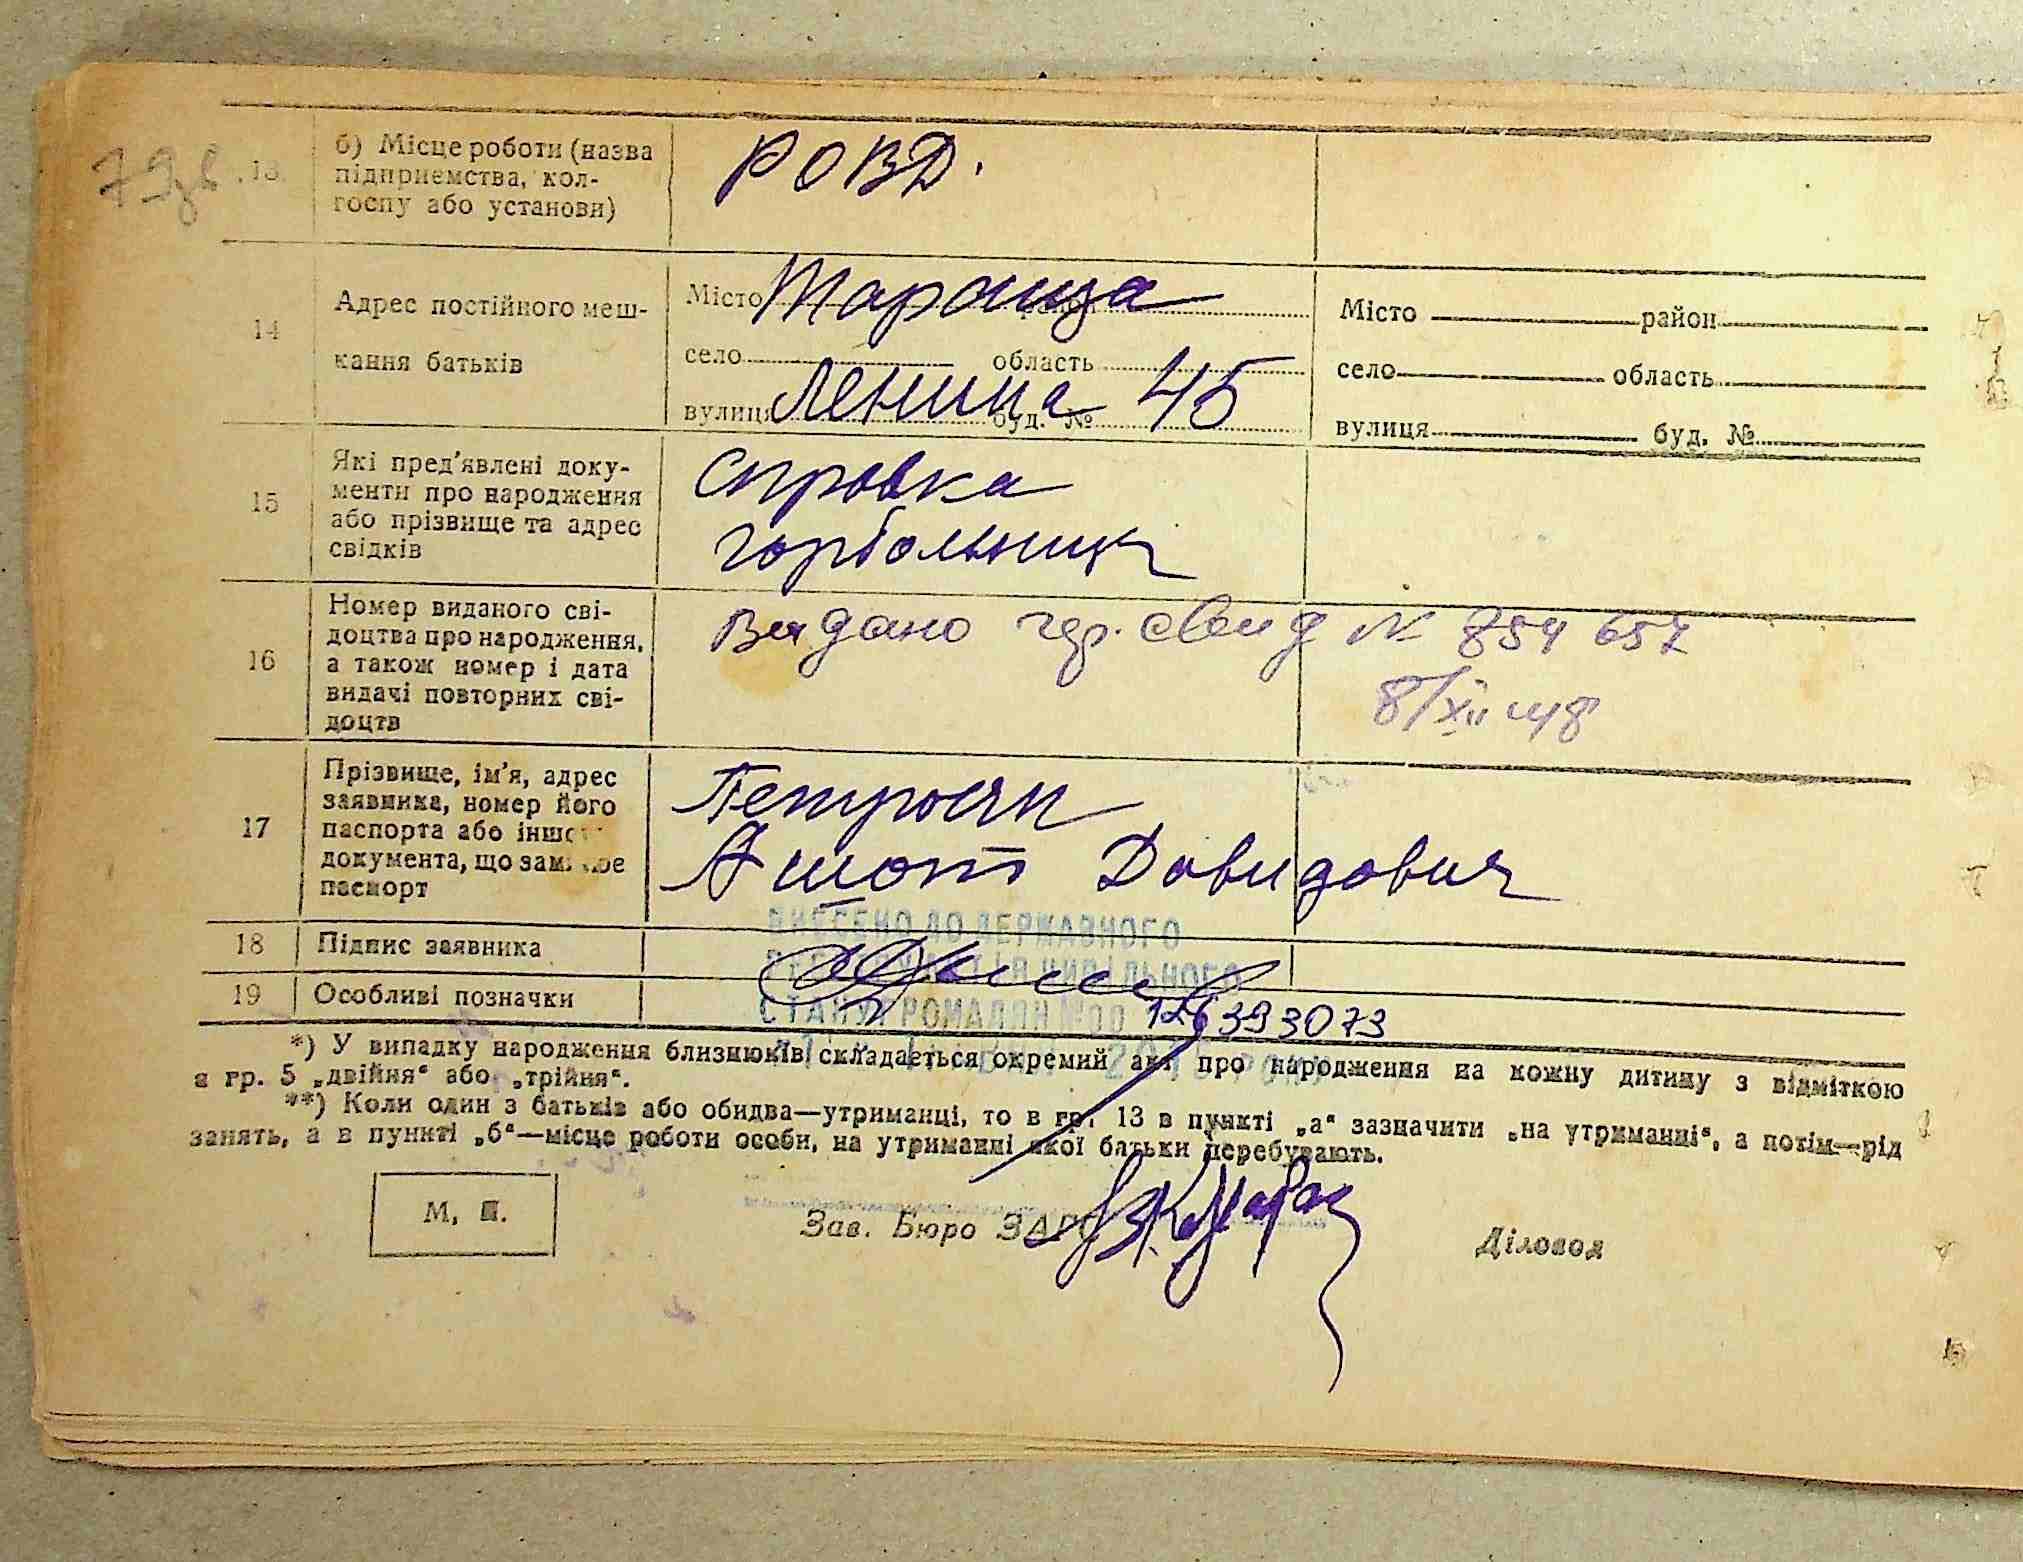 13
б) Місце роботи (назва
підприємства, кол-
госпу або установи)
РОВД.
14
Адрес постійного меш-
кання батьків
Місто Тараща район
село область
вулиця Ленина буд. № 45
Місто район
село область
вулиця буд. №
15
Які пред'явлені доку-
менти про народження
або прізвище та адрес
свідків
Справка
горбольници
16
Номер виданого сві-
доцтва про народження,
а також номер і дата
видачі повторних сві-
доцтв
Видано свид N 854 657
8/XII 48
17
Прізвище, ім'я, адрес
заявника, номер його
паспорта або іншого
документа, що замінює
паспорт
Петросян
Ашот Давидович
18
Підпис заявника
ВНЕСЕНО ДО ДЕРЖАВНОГО
РЕЄСТРУ АКТІВ ЦИВІЛЬНОГО
СТАНУ ГРОМАДЯН №00 126393073
19
Особливі позначки
*) У випадку народження близнюків складається окремий акт про народження на кожну дитину з відміткою
в гр. 5 „двійня“ або „трійня“.
**) Коли один з батьків або обидва—утриманці, то в гр. 13 в пункті „а“ зазначити „на утриманні“, а потім—рід
занять, а в пункті „б“—місце роботи особи, на утриманні якої батьки перебувають.
М. П.
Зав. Бюро ЗАГС
Діловод